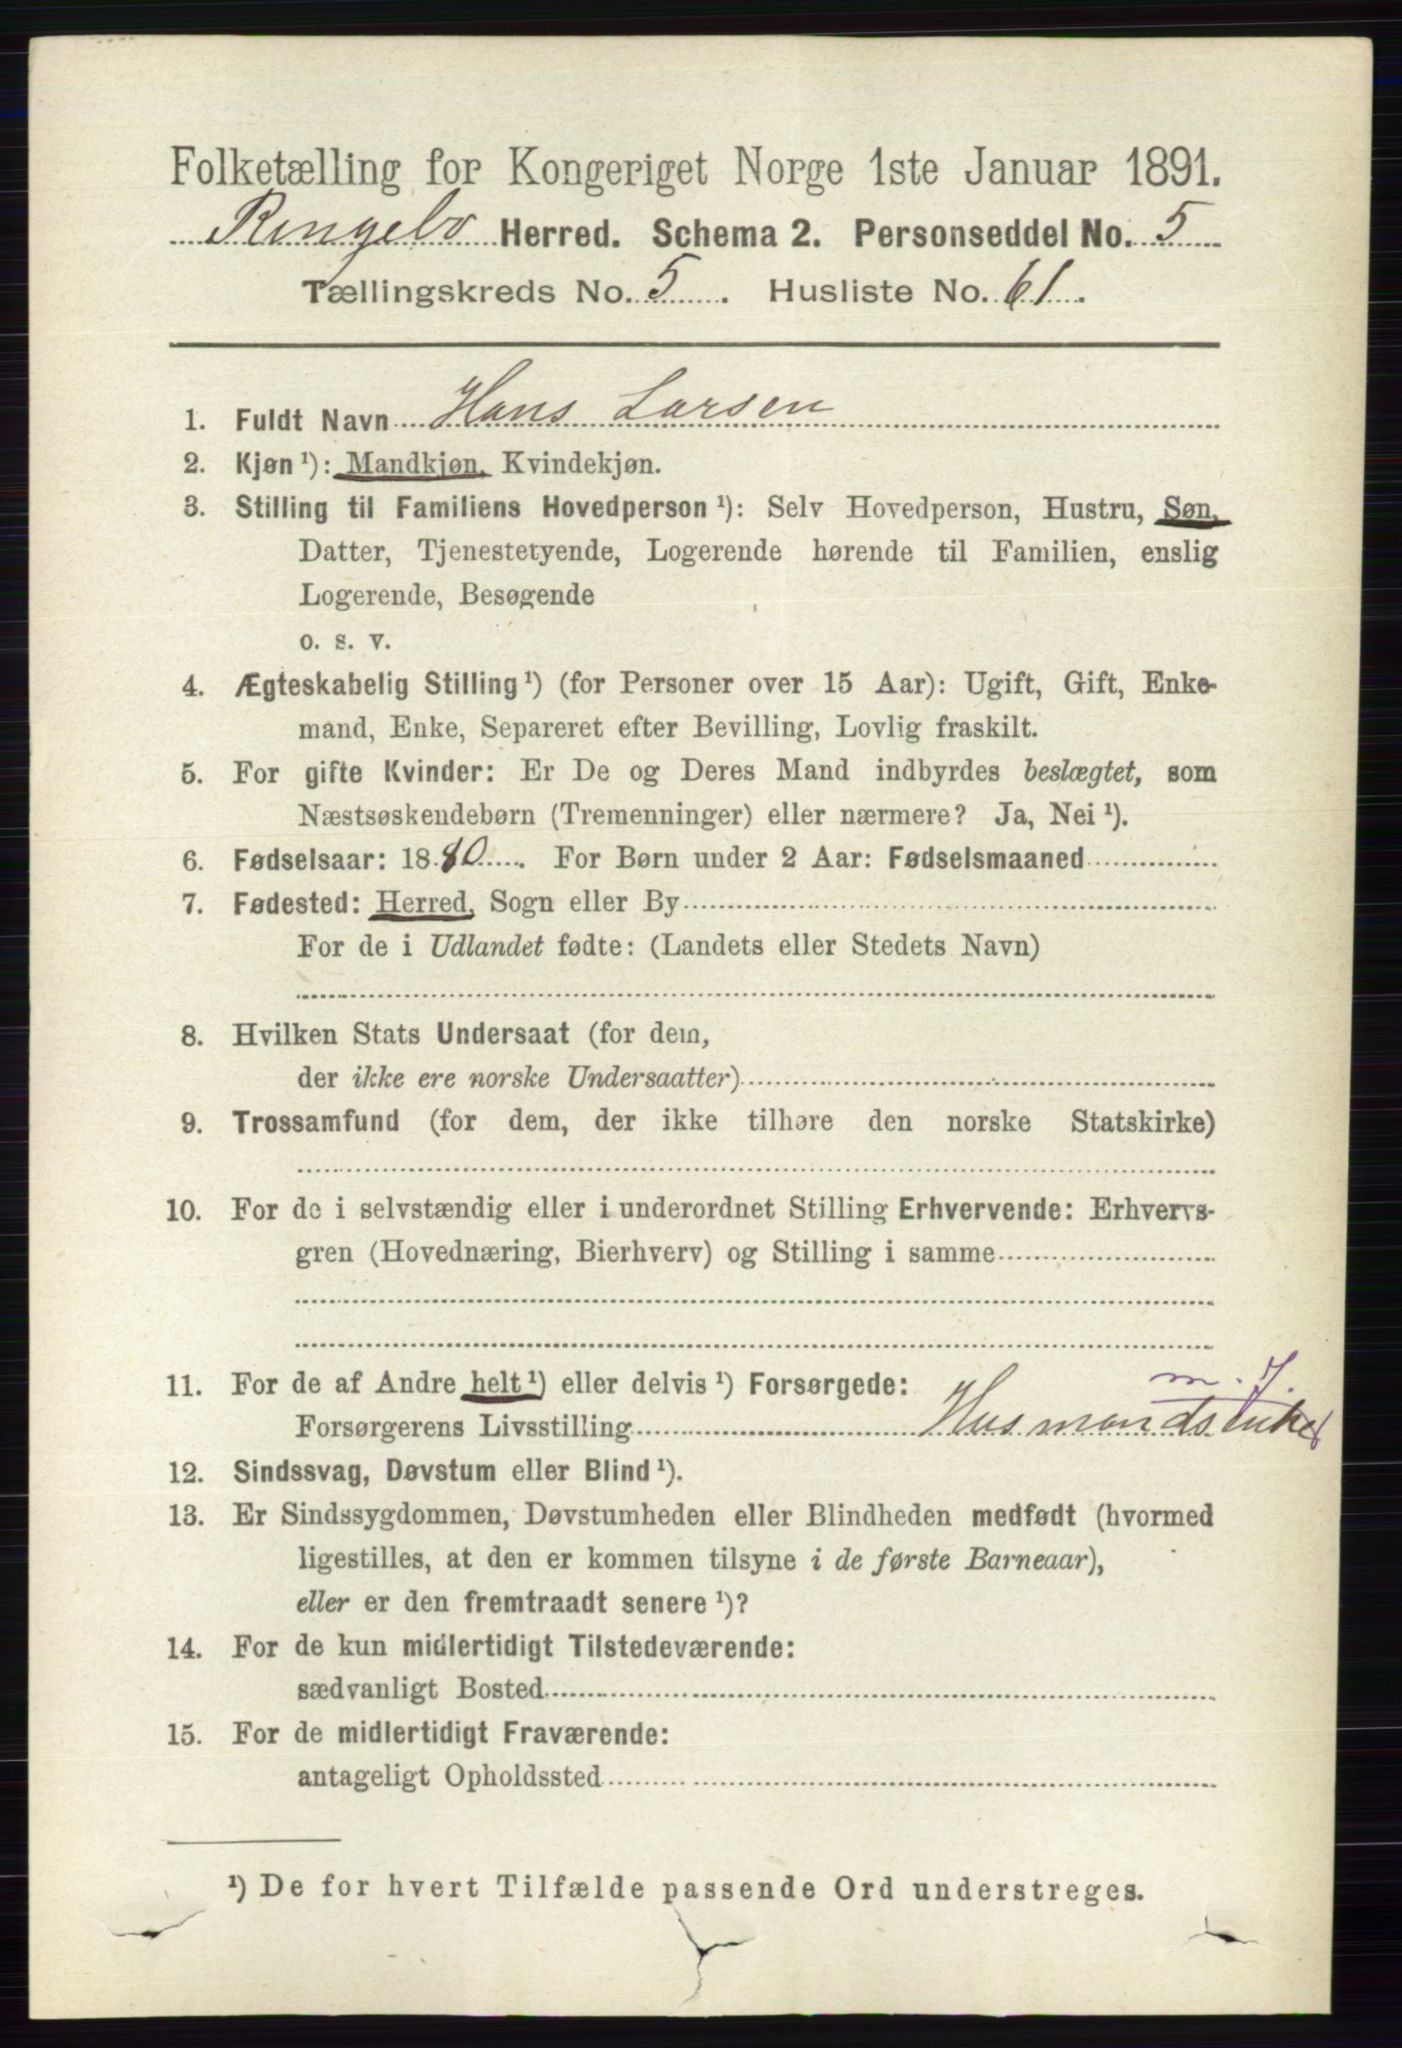 Folketælling for Kongeriget Norge 1ste Januar 1891.
Ringebo Herred. Schema 2. Personseddel No. 5
Tællingskreds No. 5. Husliste No. 61.
1. Fuldt Navn Hans Larsen
2. Kjøn ¹): Mandkjøn, Kvindekjøn.
3. Stilling til Familiens Hovedperson ¹): Selv Hovedperson, Hustru, Søn,
Datter, Tjenestetyende, Logerende hørende til Familien, enslig
Logerende, Besøgende
o. s. v.
4. Ægteskabelig Stilling ¹) (for Personer over 15 Aar): Ugift, Gift, Enke-
mand, Enke, Separeret efter Bevilling, Lovlig fraskilt.
5. For gifte Kvinder: Er De og Deres Mand indbyrdes beslægtet, som
Næstsøskendebørn (Tremenninger) eller nærmere? Ja, Nei ¹).
6. Fødselsaar: 1880. For Børn under 2 Aar: Fødselsmaaned
7. Fødested: Herred, Sogn eller By
For de i Udlandet fødte: (Landets eller Stedets Navn)
8. Hvilken Stats Undersaat (for dem,
der ikke ere norske Undersaatter)
9. Trossamfund (for dem, der ikke tilhøre den norske Statskirke)
10. For de i selvstændig eller i underordnet Stilling Erhvervende: Erhvervs-
gren (Hovednæring, Bierhverv) og Stilling i samme
m. J.
11. For de af Andre helt ¹) eller delvis ¹) Forsørgede:
Forsørgerens Livsstilling Husmandsenke
12. Sindssvag, Døvstum eller Blind ¹).
13. Er Sindssygdommen, Døvstumheden eller Blindheden medfødt (hvormed
ligestilles, at den er kommen tilsyne i de første Barneaar),
eller er den fremtraadt senere ¹)?
14. For de kun midlertidigt Tilstedeværende:
sædvanligt Bosted
15. For de midlertidigt Fraværende:
antageligt Opholdssted
¹) De for hvert Tilfælde passende Ord understreges.